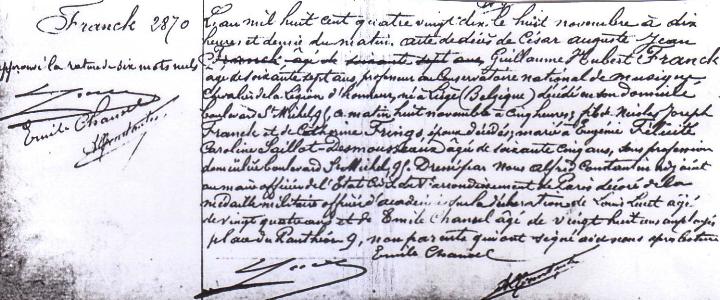 Franck 2870
approuvé la rature de six mots nuls
Emile Chancel
L'an mil huit cent quatre vingt dix le huit novembre à dix
heures et demie du matin, acte de décès de César auguste Jean
Franck âgé de soixante sept ans, Guillaume Hubert Franck
agé de soixante sept ans, professeur au Conservatoire national de musique,
Chevalier de la Légion d'honneur, né à Liège (Belgique) décédé en son domicile
boulevard St Michel 95, ce matin huit novembre à cinq heures; fils de Nicolas Joseph
Franck et de Catherine Frings, époux décédés; marié à Eugénie Félicité
Caroline Saillot-Desmousseaux âgée de soixante cinq ans, sans profession
domiciliée boulevard St Michel, 95. Dressé par nous Alfred Constantin adjoint
au maire officier de l'Etat Civil du Ve arrondissement de Paris décoré de la
médaille militaire officier d'académie sur la déclaration de Louis agé
de vingt quatre ans et de Emile Chancel âgé de vingt huit ans employés,
place du Panthéon 9, non parents qui ont signé avec nous après lecture
Emile Chancel